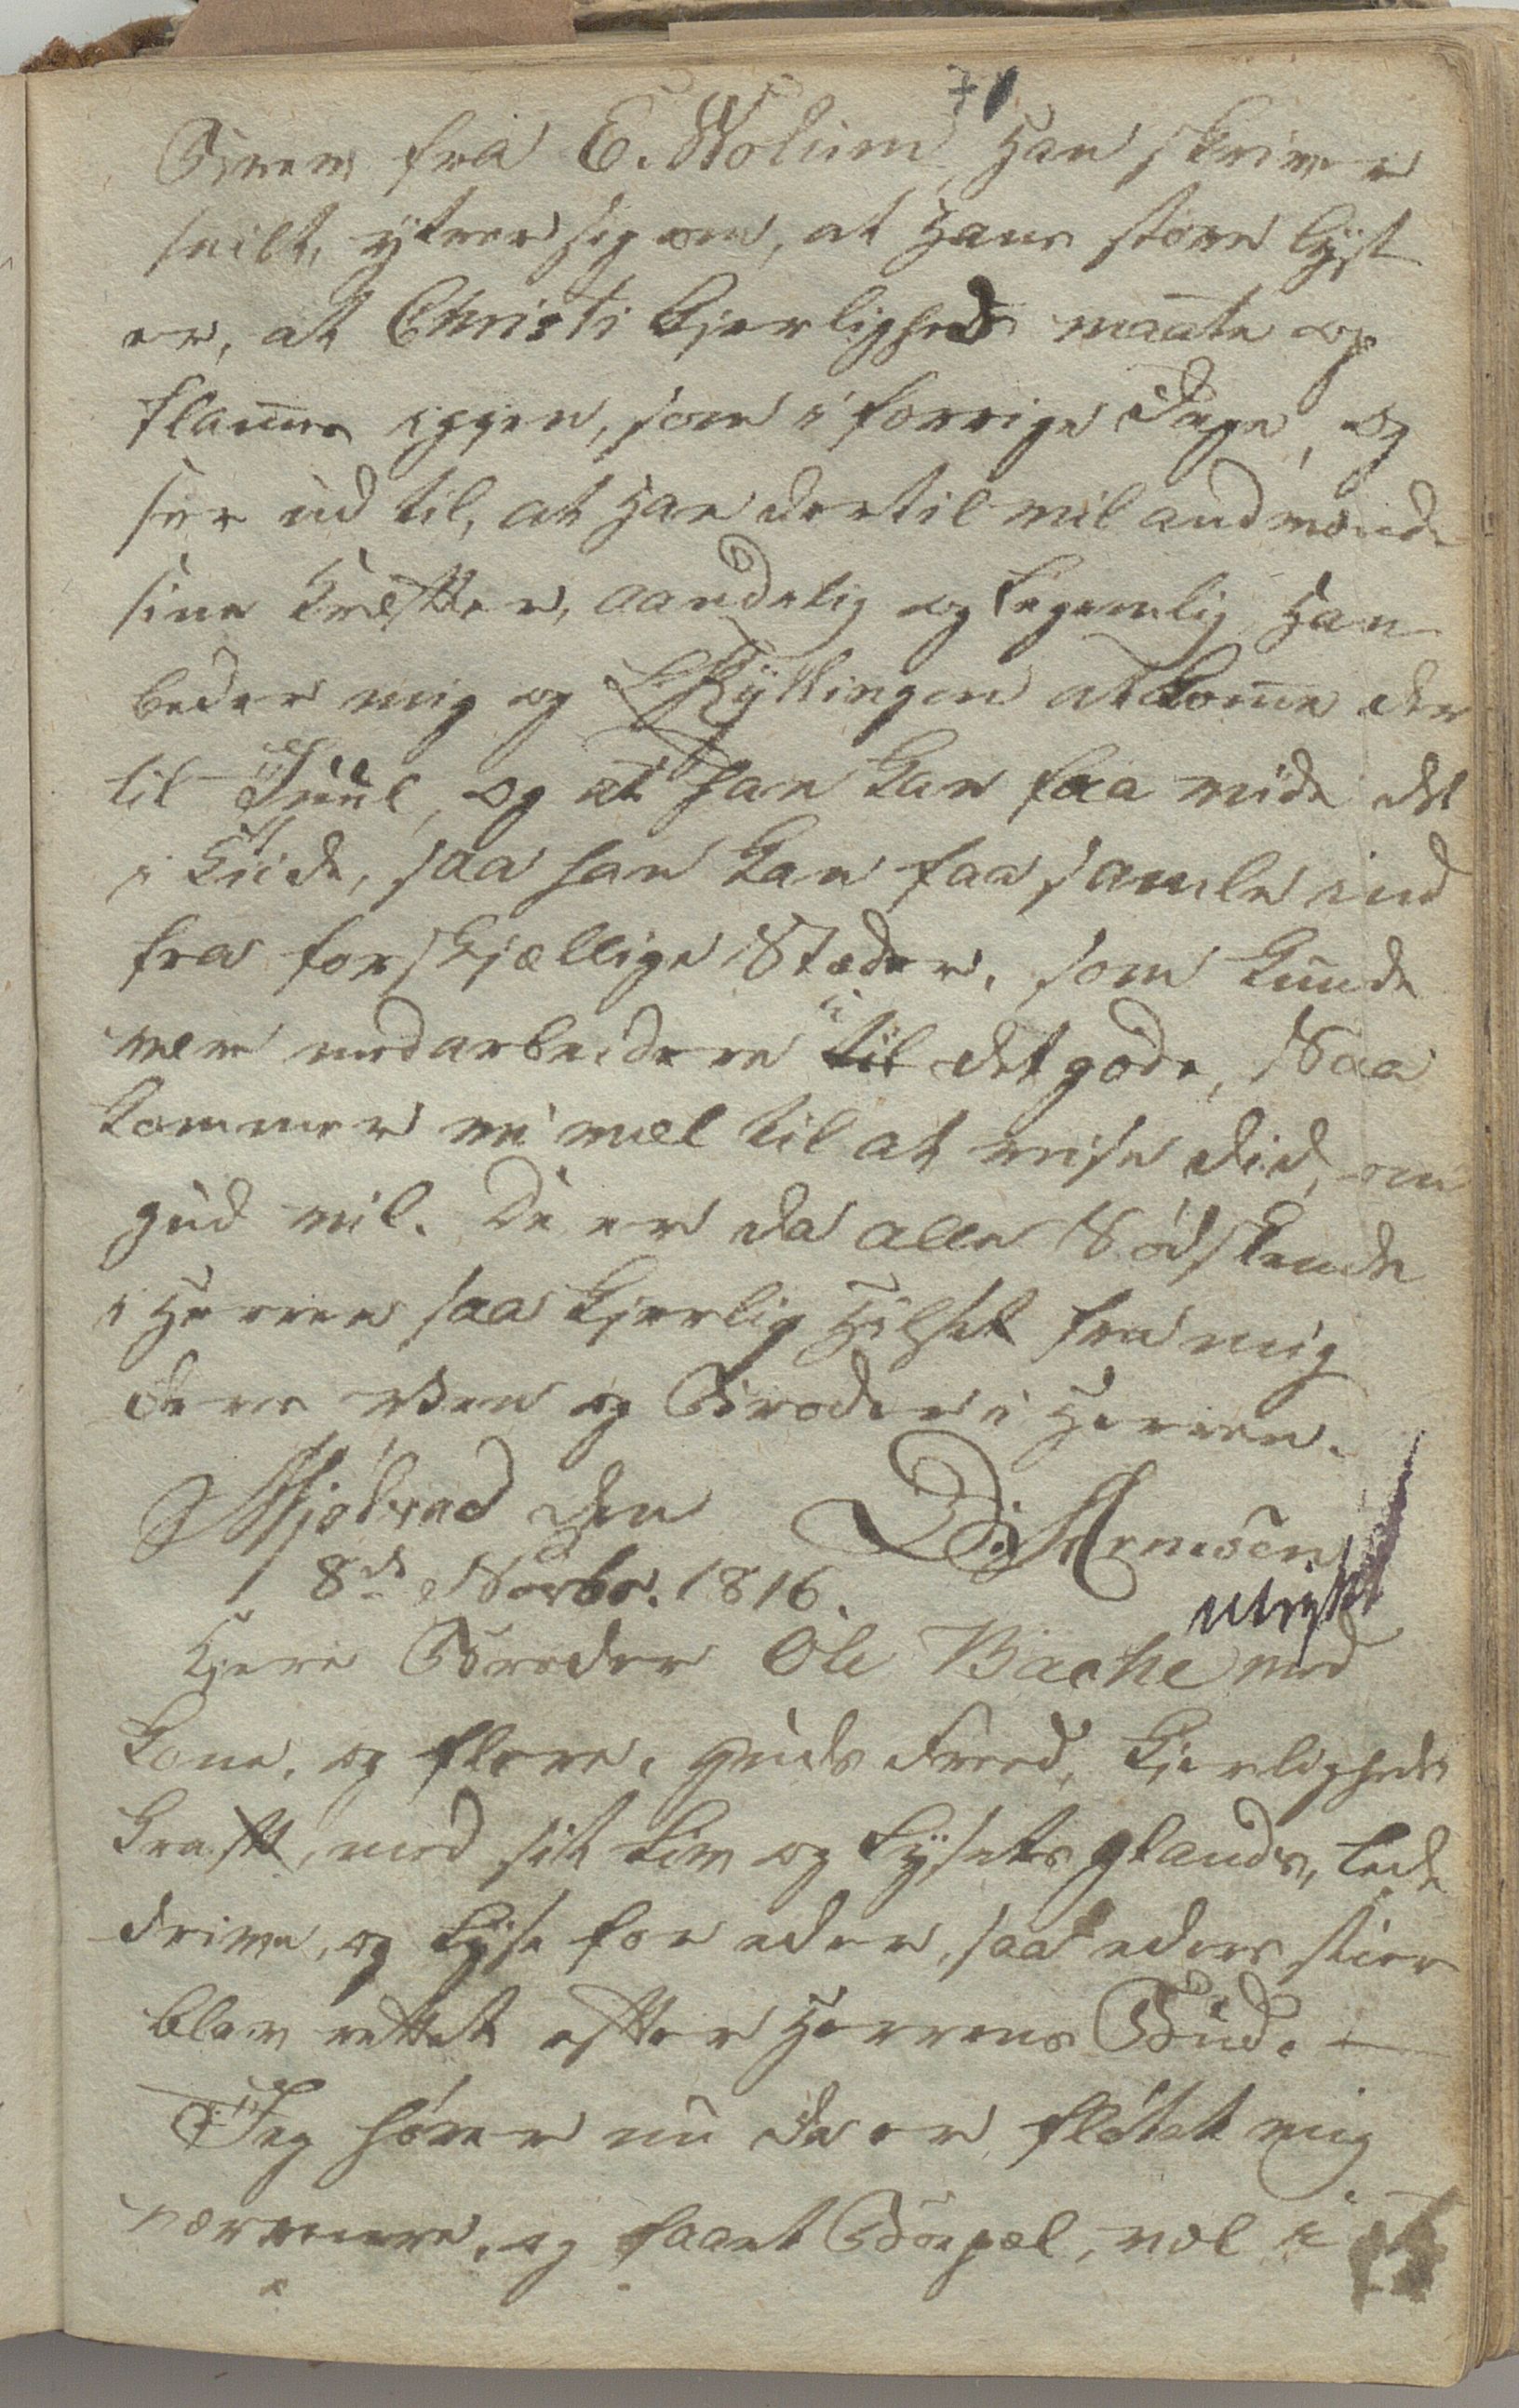 71
Brev fra E. Wolum, Han skriver
snilt, ÿtrer sig om, at Hans store lÿst
er, at Christi Kjerligheds maate op
flam̄e igjen, som i forrige Dage, og
ser ud til, at Han dertil vil andvende
sine Kræfter, aandelig og legemlig Han
beder mig og LKÿllingen at kom̄e der
til Juul, og at han kan faa vide det
i tide, saa han kan faa samle ind
fra forskjællige Stæder, som kunde
være medarbeidere i til det gode, Saa
kommer vi vael til at reise did, om
gud vil. De er da alle Sødskende
i Herren saa kjerlig Hilset fra mig
deres Ven og Broder i Herren.
Mjøsvad den
8de Novbr. 1816.
Arnesen
Kjere Broder Ole Bache med
Kone, og flere. Guds Fred, Kjerligheds
Kraft, med sit Liv og Lÿsets glands, lede
drive, og lÿse for eder, saa eders stier
blev rettet efter Herrens Bud. —
Jeg hører nu De er fløttet mig
nærmere, og faaet Bopæl, vel i